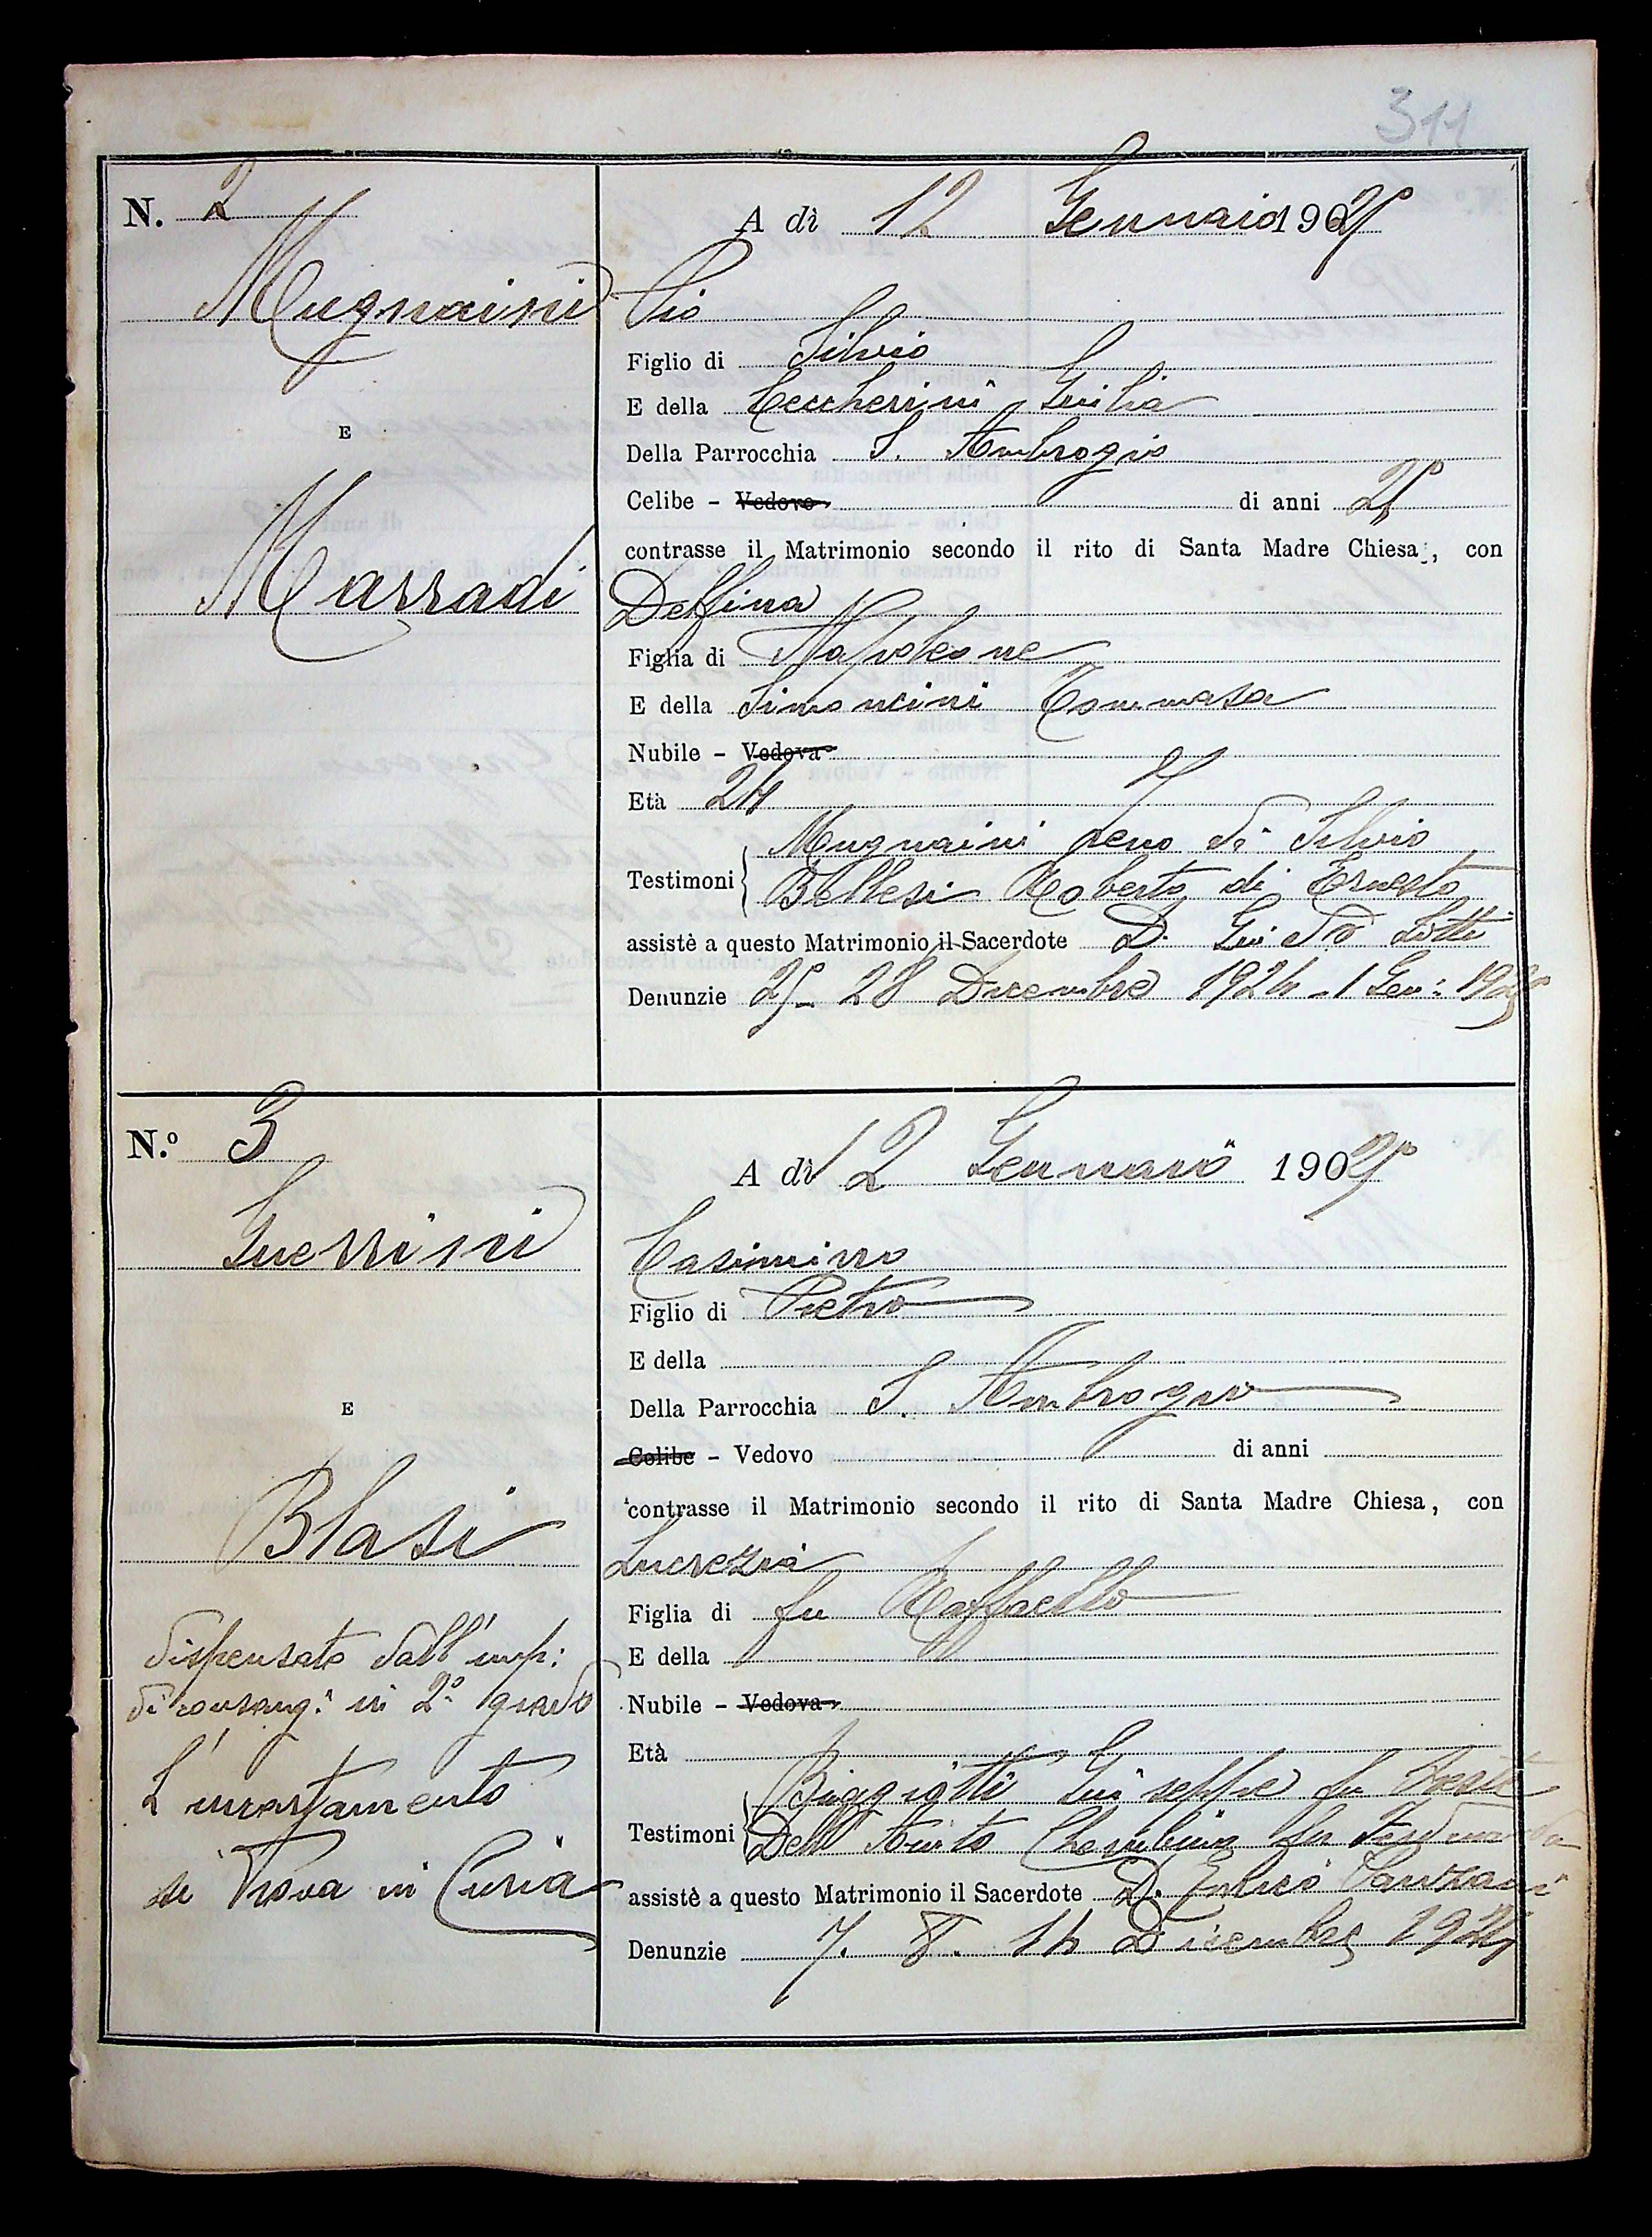 311
N. 2
A dì 12 Gennaio 1925
Mugnaini
Pio
Figlio di Silvio
E della Ceccherini Giulia
E
Della Parrocchia S. Ambrogio
Celibe - Vedovo di anni 25
contrasse il Matrimonio secondo il rito di Santa Madre Chiesa, con
Marradi
Delfina
Figlia di Napoleone
E della Simoncini Tommasa
Nubile - Vedova
Età 24
Mugnaini di Silvio
Testimoni
Bellesi Roberto di Ernesto
assistè a questo Matrimonio il Sacerdote D. Guido Lotti
Denunzie 25 - 28 Dicembre 1924 - 1 Gen: 1925
N.º 3
A dì 12 Gennaio 1925
Guerrini
Casimirro
Figlio di Pietro
E della
E
Della Parrocchia S. Ambrogio
Celibe - Vedovo di anni
contrasse il Matrimonio secondo il rito di Santa Madre Chiesa, con
Blasi
Lucrezia
Figlia di fu Raffaello
dispensato dall'imp:
E della
di consang: in 2º grado
Nubile - Vedova
L'incartamento
Età
Biaggiotti Giuseppe fu Oreste
Testimoni
Dell'Aiuto Cherubino fu Ferdinando
si trova in Curia
assistè a questo Matrimonio il Sacerdote D. Enrico
Denunzie 7. 8. 14 Dicembre 1924